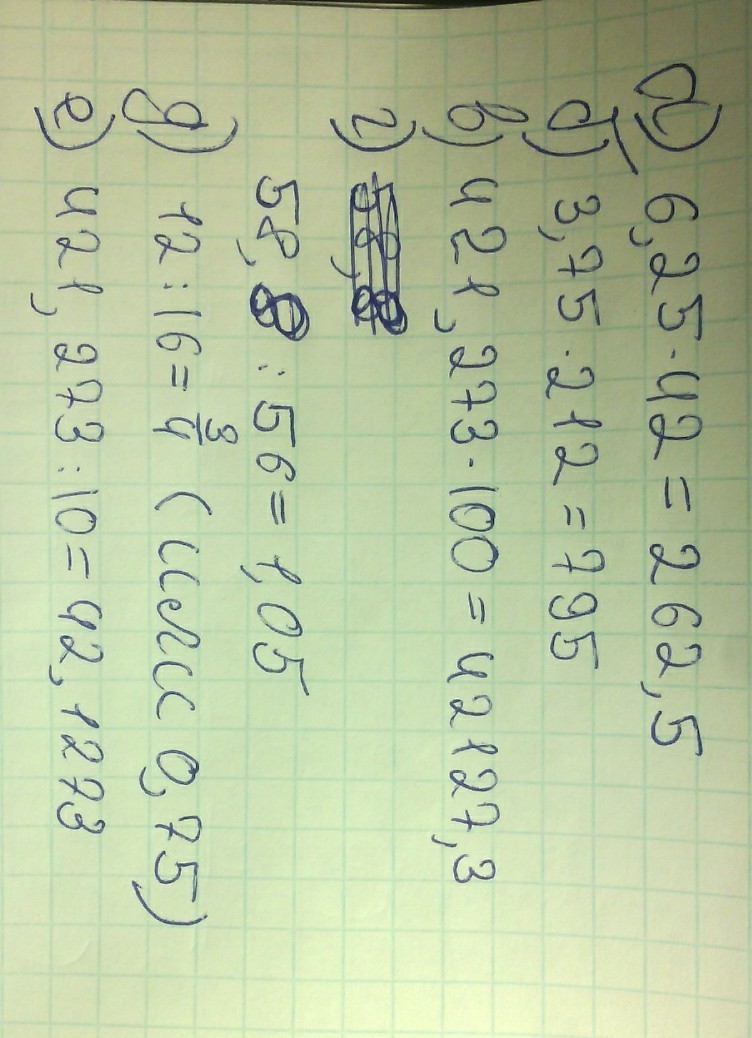 а) 6,25·42=262,5
б) 3,75·212=795
в) 421,273·100=42127,3
г) 58,8
58,8:56=1,05
д) 12:16=3/4 (или 0,75)
е) 421,273:10=42,1273